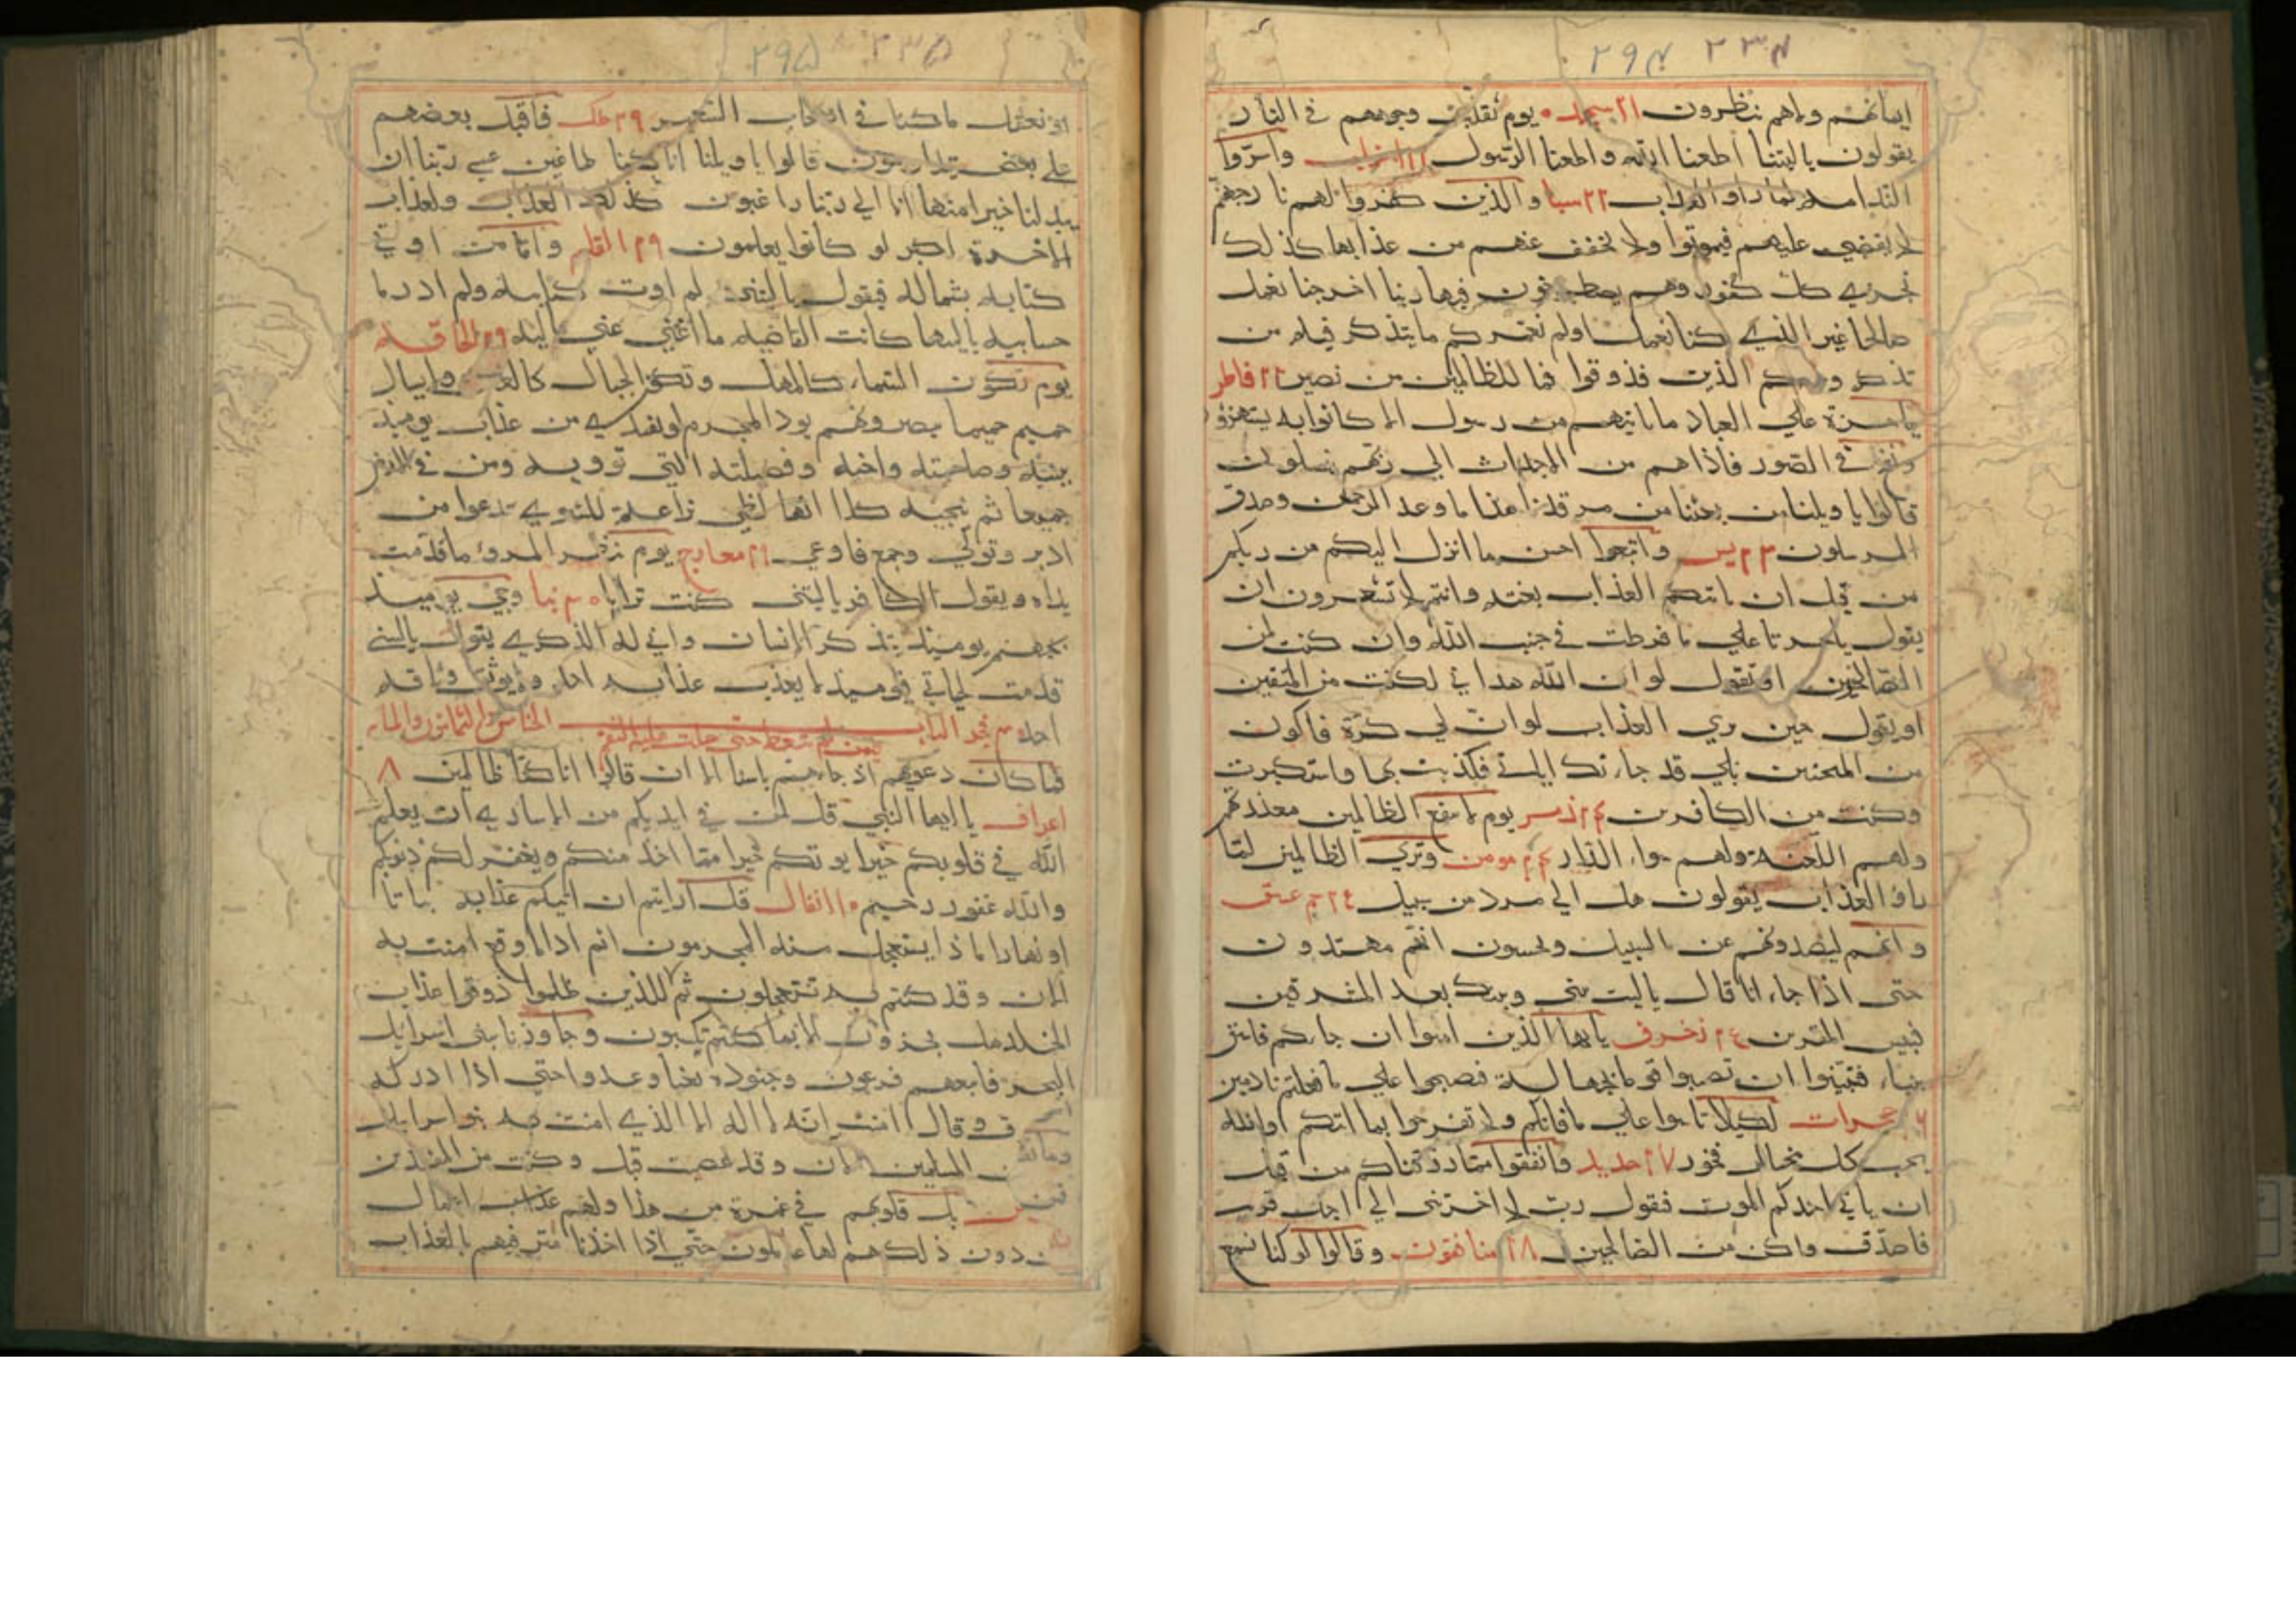 ٢٩٤ ٢٣٤
ايمانهم ولاهم ينظرون ٢١ سجده يوم تقلب وجوههم في النار
يقولون ياليتنا اطعنا الله واطعنا الرسول ٢١ احزاب واسروا
الندامه لما راو العذاب ٢٢ سبا والذين كفروا لهم نار جهنم
لا يقضي عليهم فيموتوا ولا يخفف عنهم من عذابها كذلك
نجزي كل كفور وهم يصطرخون فيها ربنا اخرجنا نعمل
صالحا غير الذي كنا نعمل اولم نعمركم مايتذكر فيه من
تذكر وجاءكم النذير فذوقوا فما للظالمين من نصير ٢٢ فاطر
ياحسرة علي العباد ماياتيهم من رسول الا كانوا به يستهزؤ
ونفخ في الصور فاذاهم من الاجداث الي ربهم ينسلون
قالوا يا ويلنا من بعثنا من مرقدنا هذا ما وعد الرحمن وصدق
المرسلون ٢٣ يس واتبعوا احسن ما انزل اليكم من ربكم
من قبل ان ياتيكم العذاب بغتة وانتم لا تشعرون ان
يقول ياحسرتا علي ما فرطت في جنب الله وان كنت لمن
اوتقول لو ان الله هداني لكنت من المتقين
اويقول حين يري العذاب لو ان لي كرة فاكون
من المحسنين بلي قد جاءتك اياتي فكذبت بها واستكبرت
وكنت من الكافرين ٢٤ زمر يوم لا ينفع الظالمين معذرتهم
ولهم اللعنة ولهم سواء الدار ٢٤ مومن وتري الظالمين لما
راؤ العذاب يقولون هل الي مرد من سبيل ٢٤ حم عسق
وانهم ليصدونهم عن السبيل ويحسبون انهم مهتدون
حتي اذا جاءنا قال ياليت بيني وبينك بعد المشرقين
فبيس القرين ٢٤ زخرف ياايها الذين امنوا ان جاءكم فاسق
بنباء فتبينوا ان تصيبوا قوما بجهالة فتصبحوا علي ما فعلتم نادمين
حجرات لكيلا تاسوا علي مافاتكم ولا تفرحوا بما اتيكم والله
يحب كل مختال فخور ٢٧ حديد وانفقوا مما رزقناكم من قبل
ان ياتي احدكم الموت فيقول رب لا اخرتني الي اجل قريب
فاصدق واكن من الصالحين ٢٨ منافقون وقالوا لو كنا نسمع
٢٩٥ ٢٣٥
او نعقل ما كنا في اصحاب السعير ٢٩ ملك فاقبل بعضهم
علي بعض يتلاومون قالوا يا ويلنا انا كنا طاغين عسي ربنا ان
يبدلنا خيرا منها انا الي ربنا راغبون كذلك العذاب ولعذاب
الاخرة اكبر لو كانوا يعلمون ٢٩ القلم واما من اوتي
كتابه بشماله فيقول ياليتني لم اوت كتابيه ولم ادر ما
حسابيه ياليتها كانت القاضيه ما اغني عني ماليه ٢٩ الحاقه
يوم تكون السماء كالمهل وتكون الجبال كالعهن ولايسال
حميم حميما يبصرونهم يود المجرم لو يفتدي من عذاب يوميذ
ببنيه وصاحبته واخيه وفصيلته التي توويه ومن في الارض
جميعا ثم ينجيه كلا انها لظي نزاعة للشوي تدعوا من
ادبر وتولي وجمع فاوعي ٢٩ معارج يوم ينظر المرؤ ماقدمت
يداه ويقول الكافر ياليتني كنت ترابا ٣٠ نبا وجي يوميذ
بجهنم يوميذ يتذكر الانسان واني له الذكري يقول ياليتني
قدمت لحياتي فيوميذ لا يعذب عذابه احد ولايوثق وثاقه
احد ٣٠ فجر الباب الخامس والثمانون والمايه
فيمن لم يتعظ حتي حلت عليه النقم
فما كان دعويهم اذ جاءهم باسنا الا ان قالوا انا كنا ظالمين ٨
اعراف يا ايها النبي قل لمن في ايديكم من الاساري ان يعلم
الله في قلوبكم خيرا يوتكم خيرا مما اخذ منكم ويغفر لكم ذنوبكم
والله غفور رحيم ١٠ انفال قل ارايتم ان اتيكم عذابه بياتا
او نهارا ماذا يستعجل منه المجرمون اثم اذا ما وقع امنتم به
الان وقد كنتم به تستعجلون ثم للذين ظلموا ذوقوا عذاب
الخلد هل تجزون الا بما كنتم تكسبون وجاوزنا ببني اسرايل
البحر فاتبعهم فرعون وجنوده بغيا وعدوا حتي اذا ادركه
قال امنت انه لا اله الا الذي امنت به بنو اسرايل
المسلمين الان وقد عصيت قبل وكنت من المفسدين
بل قلوبهم في غمرة من هذا ولهم اعمال
دون ذلك هم لها عاملون حتي اذا اخذنا مترفيهم بالعذاب